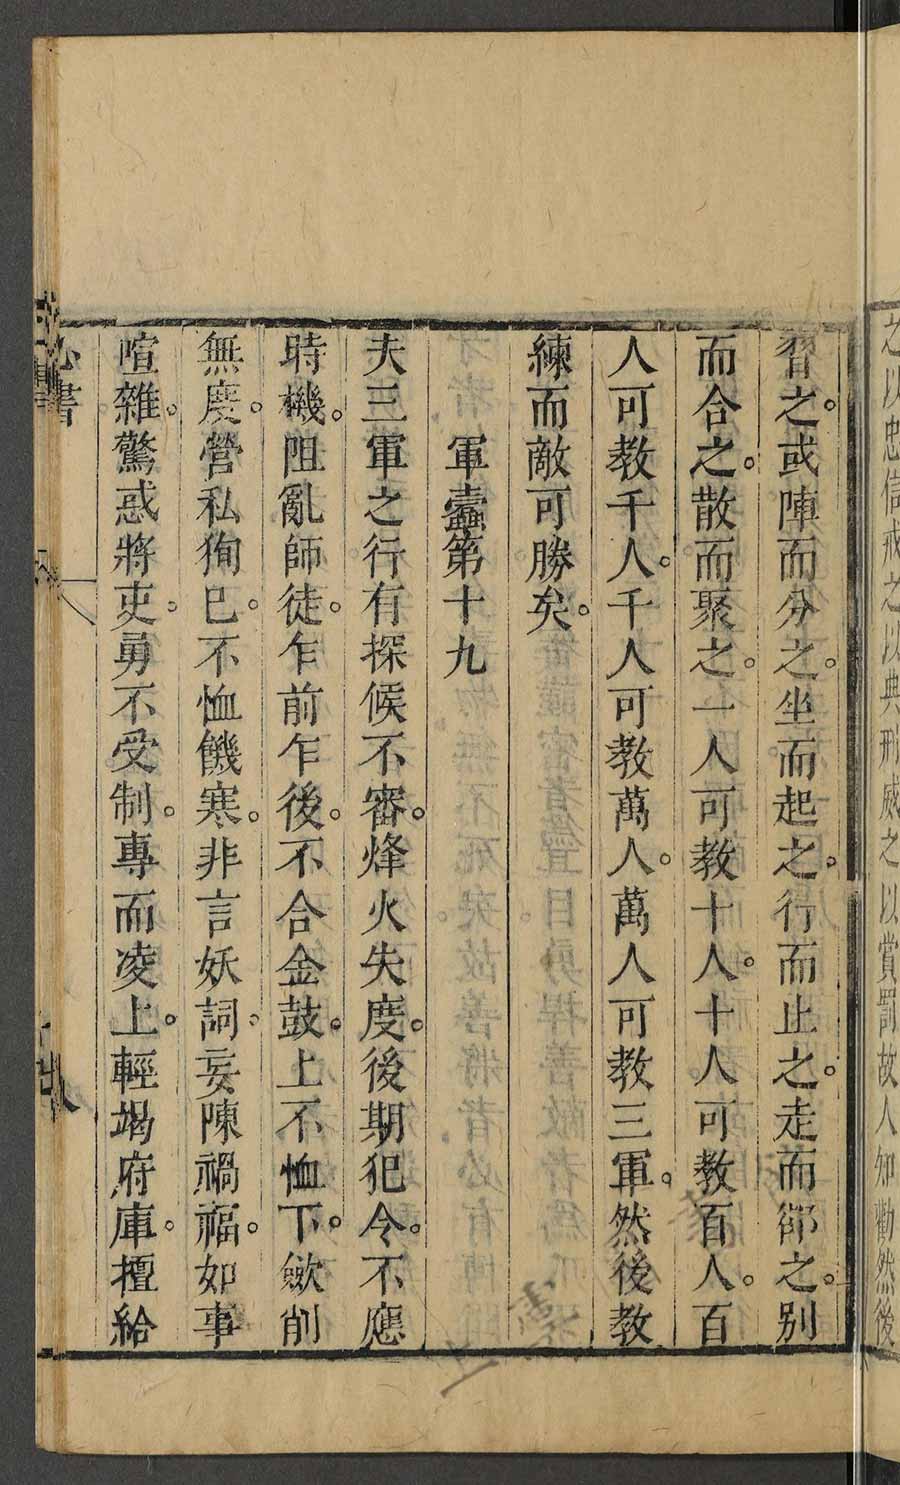 之以忠信戒之以典刑威之以賞罰故人知勸然後
習之。或陣而分之。坐而起之。行而止之。走而卻之。别
而合之。散而聚之。一人可教十人。十人可教百人。百
人可教千人。千人可教萬人。萬人可教三軍。然後教
練而敵可勝矣。
軍蠹第十九
夫三軍之行有探候不審。烽火失度。後期犯令。不應
時機。阻亂師徒。乍前乍後。不合金鼓。上不恤下。斂削
無度。營私徇已。不恤饑寒。非言妖詞。妄陳禍福。如事
喧雜。驚惑將吏。勇不受制。專而凌上。輕竭府庫。擅給
心書